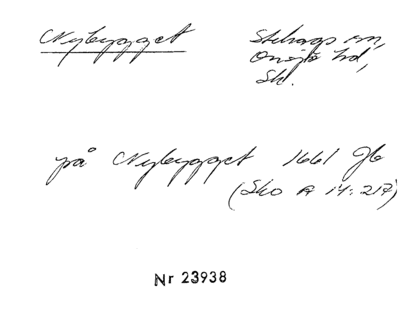 Nybygget Stehags sn,
Onsjö hd,
Sk.
på Nybygget 1661 Jb
(Sko A 14: 217)
Nr 23938